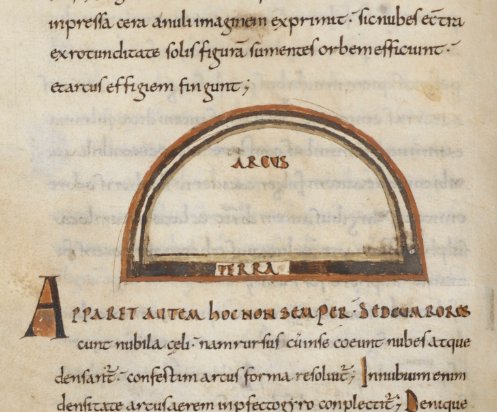 inpressa cera anuli imaginem exprimit. sic nubes e contra
ex rotunditate solis figurā sumentes orbem efficiunt.
et arcus effigiem fingunt;
ARCUS
TERRA
APPARET AUTEM hoc NON SEMPER. SED CUM RORES
cunt nubila çeli. nam rursus cū in se coeunt nubes atque
densant̄. confestim arcus forma resoluit̄; Innubum enim
densitate arcus aerem inpfecto gyro conplectit̄; Denique